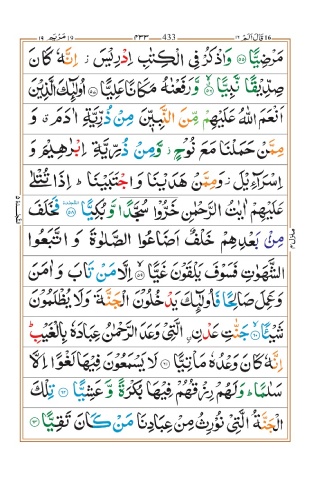 قال الم ١٦ 433 ٤٣٣ مريم ١٩
مَرْضِيًّا ٥٥ وَاذْكُرْ فِى الْكِتٰبِ اِدْرِيْسَ ز اِنَّهٗ كَانَ
صِدِّيْقًا نَّبِيًّا ٥٦ وَّرَفَعْنٰهُ مَكَانًا عَلِيًّا ٥٧ اُولٰٓئِكَ الَّذِيْنَ
اَنْعَمَ اللّٰهُ عَلَيْهِمْ مِّنَ النَّبِيّٖنَ مِنْ ذُرِّيَّةِ اٰدَمَ ق وَ
مِمَّنْ حَمَلْنَا مَعَ نُوْحٍ ز وَّمِنْ ذُرِّيَّةِ اِبْرٰهِيْمَ وَ
اِسْرَآءِيْلَ ز وَمِمَّنْ هَدَيْنَا وَاجْتَبَيْنَا ط اِذَا تُتْلٰى
عَلَيْهِمْ اٰيٰتُ الرَّحْمٰنِ خَرُّوْا سُجَّدًا وَّبُكِيًّا ٥٨ فَخَلَفَ
مِنْۢ بَعْدِهِمْ خَلْفٌ اَضَاعُوا الصَّلٰوةَ وَ اتَّبَعُوا
الشَّهَوٰتِ فَسَوْفَ يَلْقَوْنَ غَيًّا ٥٩ اِلَّا مَنْ تَابَ وَ اٰمَنَ
وَعَمِلَ صَالِحًا فَاُولٰٓئِكَ يَدْخُلُوْنَ الْجَنَّةَ وَلَا يُظْلَمُوْنَ
شَيْـًٔا ٦٠ جَنّٰتِ عَدْنِ اۨلَّتِيْ وَعَدَ الرَّحْمٰنُ عِبَادَهٗ بِالْغَيْبِ ط
اِنَّهٗ كَانَ وَعْدُهٗ مَاْتِيًّا ٦١ لَا يَسْمَعُوْنَ فِيْهَا لَغْوًا اِلَّا
سَلٰمًا ط وَلَهُمْ رِزْقُهُمْ فِيْهَا بُكْرَةً وَّعَشِيًّا ٦٢ تِلْكَ
الْجَنَّةُ الَّتِيْ نُوْرِثُ مِنْ عِبَادِنَا مَنْ كَانَ تَقِيًّا ٦٣